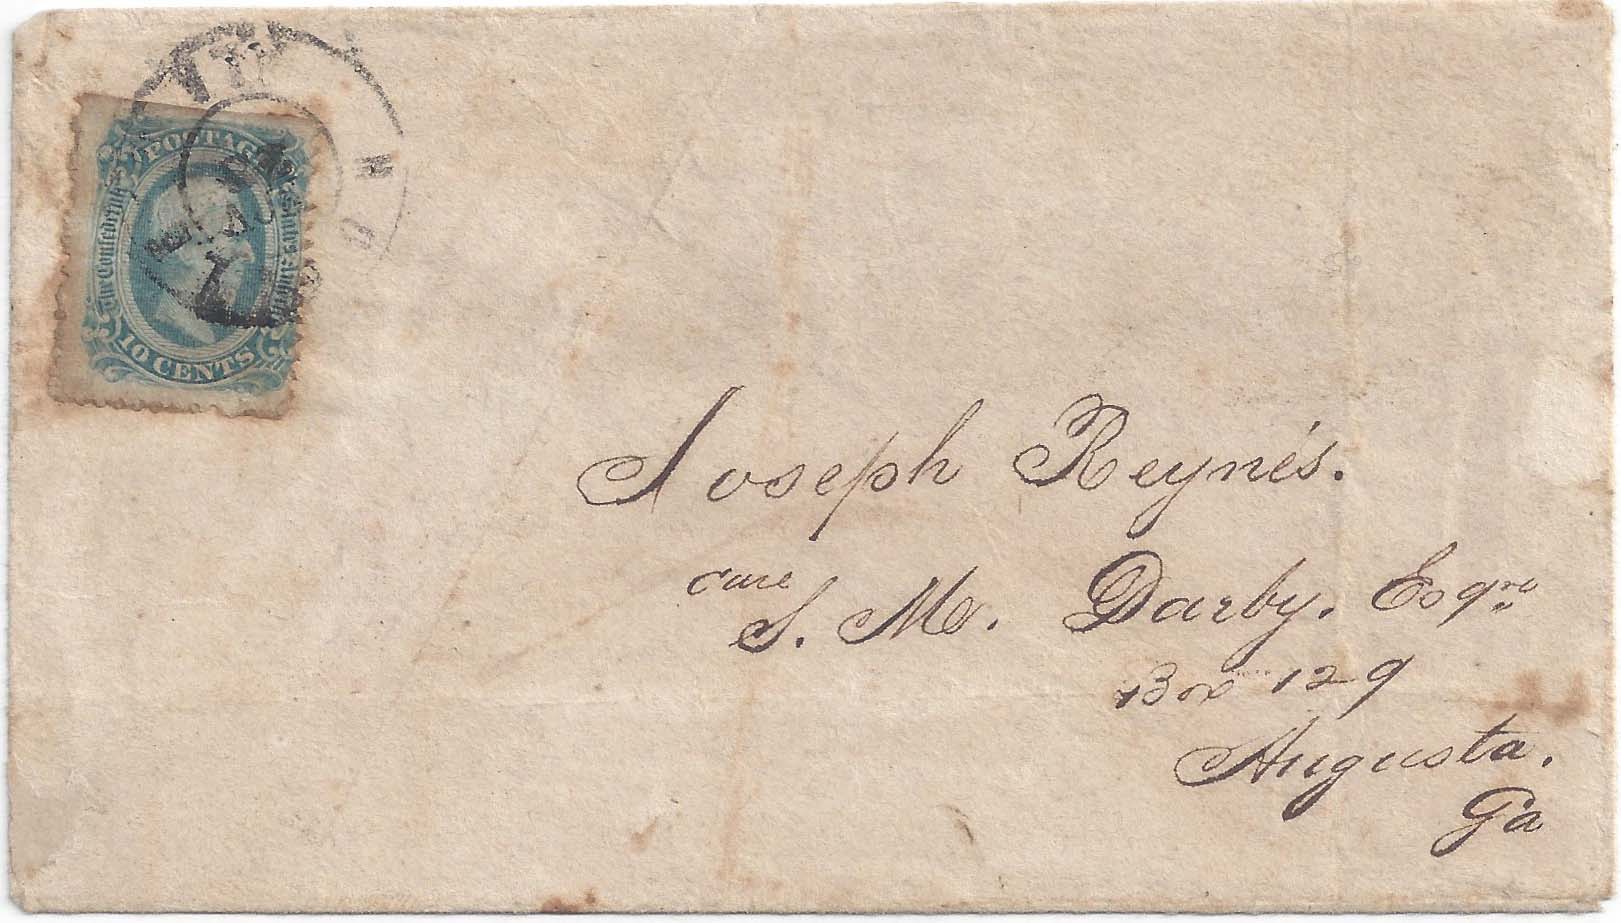 POSTAGE
The Confederate States of America
10 CENTS
Joseph Reynés.
care
S. M. Darby. Esqre
Box 129
Augusta.
Ga